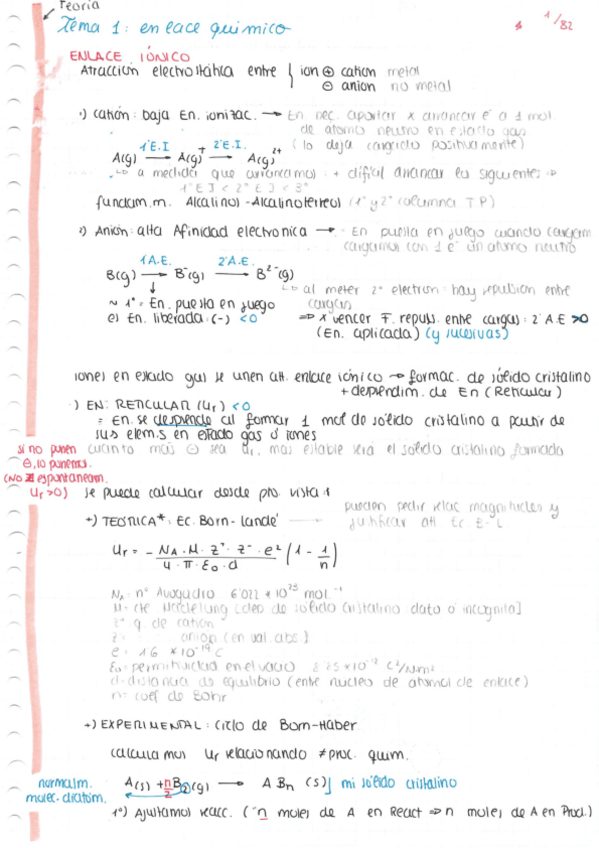 Teoría
Tema 1: enlace químico
1/82
ENLACE IÓNICO
Atracción electrostática entre { ion ⊕ cation metal
⊖ anion no metal
·) Catión: baja En. ionizac. → En nec. aportar x arrancar é a 1 mol.
de atomo neutro en estado gas
(lo deja cargado positivamente)
A(g) 1ªE.I → A(g)⁺ 2ªE.I. → A(g)²⁺
↳ a medida que arrancamos: + difícil arrancar los siguientes ⇒
1ªEI < 2ªEI < 3ª
fundam.m. Alcalinos - Alcalinoterreos (1ª y 2ª columna T.P)
·) Anión: alta Afinidad electronica → En puesta en juego cuando cargam
cargamos con 1 é un atomo neutro
B(g) 1A.E. → B⁻(g) 2ªA.E. → B²⁻(g)
↳ al meter 2º electron: hay repulsion entre
cargas
~ 1ª = En. puesta en juego
es En. liberada: (-) <0
⇒ x vencer F. repuls. entre cargas: 2ª A.E >0
(En. aplicada) (y sucesivas)
iones en estado gas se unen att. enlace iónico → formac. de sólido cristalino
+ desprendim. de En (Reticular)
·) EN: RETICULAR (Ur) <0
= En. se desprende al formar 1 mol de sólido cristalino a partir de
sus elem.s en estado gas ó iones
cuanto mas ⊖ sea Ur, mas estable será el solido cristalino formado
si no ponen
⊖, lo ponemos.
(NO espontaneam.
Ur>0)
se puede calcular desde pto. vista:
+) TEÓRICA*: EC. Born-Landé
pueden pedir relac magnitudes y
justificar att Ec. B-L.
Ur = - NA · M · Z⁺ · Z⁻ · e² / 4 · π · ε₀ · d (1 - 1/n)
NA = nº Avogadro 6'022 * 10²³ mol.⁻¹
M = cte Madelung [dep de sólido cristalino dato o incognita]
Z⁺ q. de catión
Z⁻ anion (en val. abs.)
e = 1'6 * 10⁻¹⁹ C
ε₀ = permitividad en el vacío 8'85 * 10⁻¹² C²/Nm²
d = distancia de equilibrio (entre nucleo de atomos de enlace)
n = coef de Bohr
+) EXPERIMENTAL: Ciclo de Born-Haber
calculamos Ur relacionando ≠ proc. quim.
normalm.
molec. diatóm.
A(s) + n/2 B₂(g) → A Bn (s) ] mi sólido cristalino
1º) Ajustamos reacc. (n moles de A en React ⇒ n moles de A en Prod.)